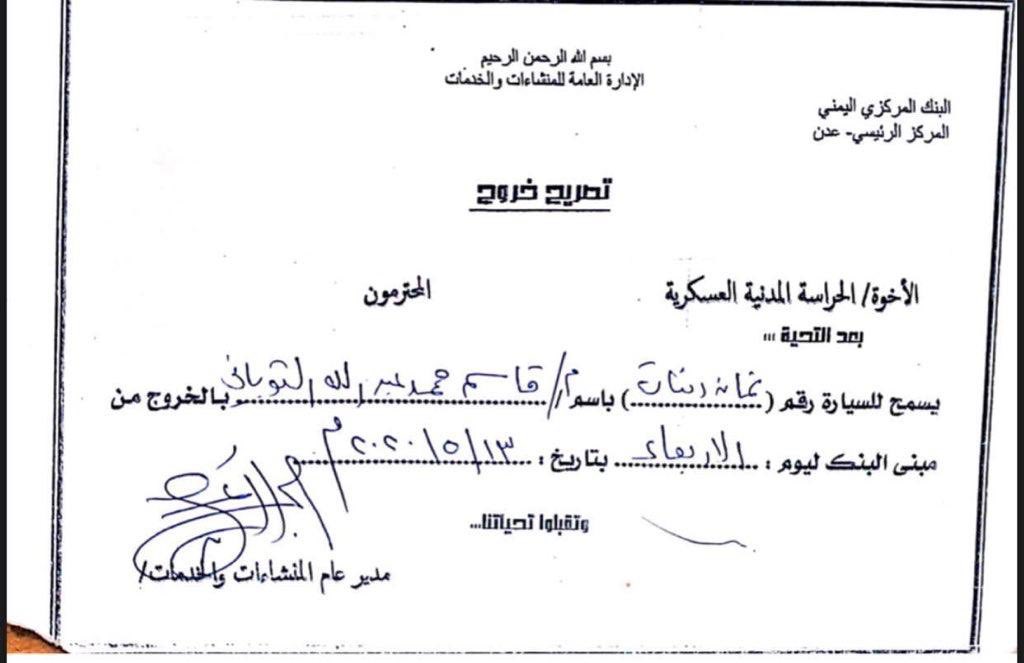 بسم الله الرحمن الرحيم
الإدارة العامة للمنشاءات والخدمات
البنك المركزي اليمني
المركز الرئيسي- عدن
تصريح خروج
الأخوة/ الحراسة المدنية العسكرية المحترمون
بعد التحية ,,,
يسمح للسيارة رقم (ثمانه دينات) باسم/ م/ قاسم محمد عبد الله الثوباني بالخروج من
مبنى البنك ليوم : الاربعاء بتاريخ : ١٣/٥/٢٠٢٠م
وتقبلوا تحياتنا...
مدير عام المنشاءات والخدمات/